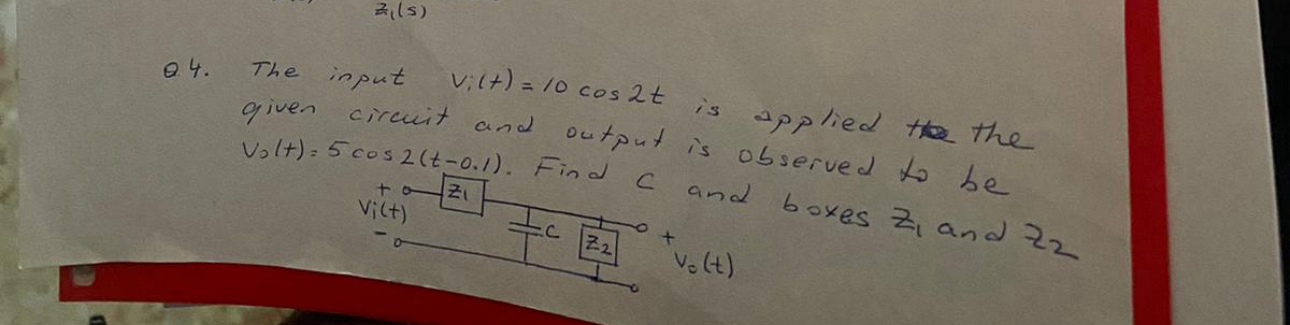 Z₁(s)
Q.4. The input Vi(t) = 10 cos 2t is applied the
given circuit and output is observed to be
Vo(t) = 5 cos 2(t-0.1). Find C and boxes Z₁ and Z₂
+ Z₁
Vi(t) C Z₂ +
- Vo(t)